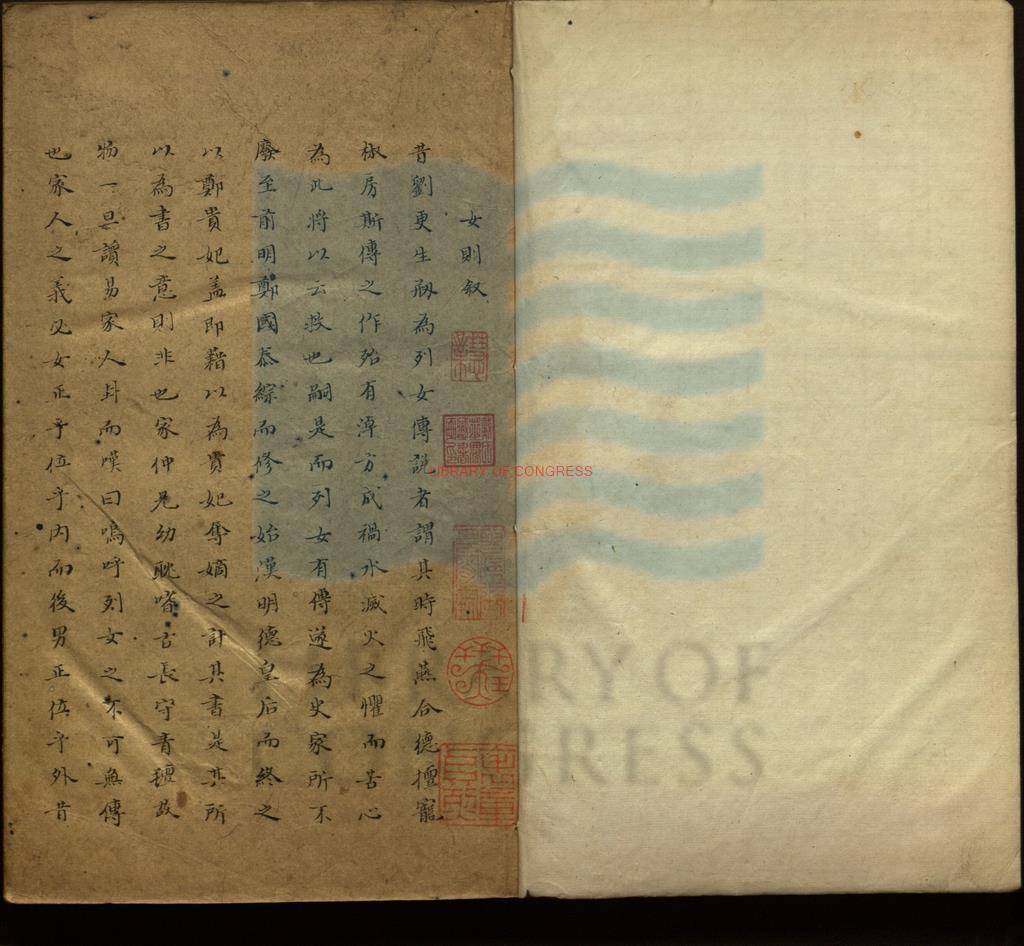 女則叙
昔劉更生剏為列女傳説者謂其時飛燕合德擅寵
椒房斯傳之作殆有淖方成禍水滅火之懼而苦心
為此將以云救也嗣是而列女有傳遂為史家所不
廢至前明鄭國泰綜而修之始漢明德皇后而終之
以鄭貴妃蓋即藉以為貴妃奪嫡之計其書是其所
以為書之意則非也家仲兄幼耽嗜古長守青氊故
物一旦讀易家人卦而嘆曰嗚呼列女之不可無傳
也家人之義必女正乎位乎内而後男正位乎外昔
LIBRARY OF CONGRESS
RY OF
GRESS